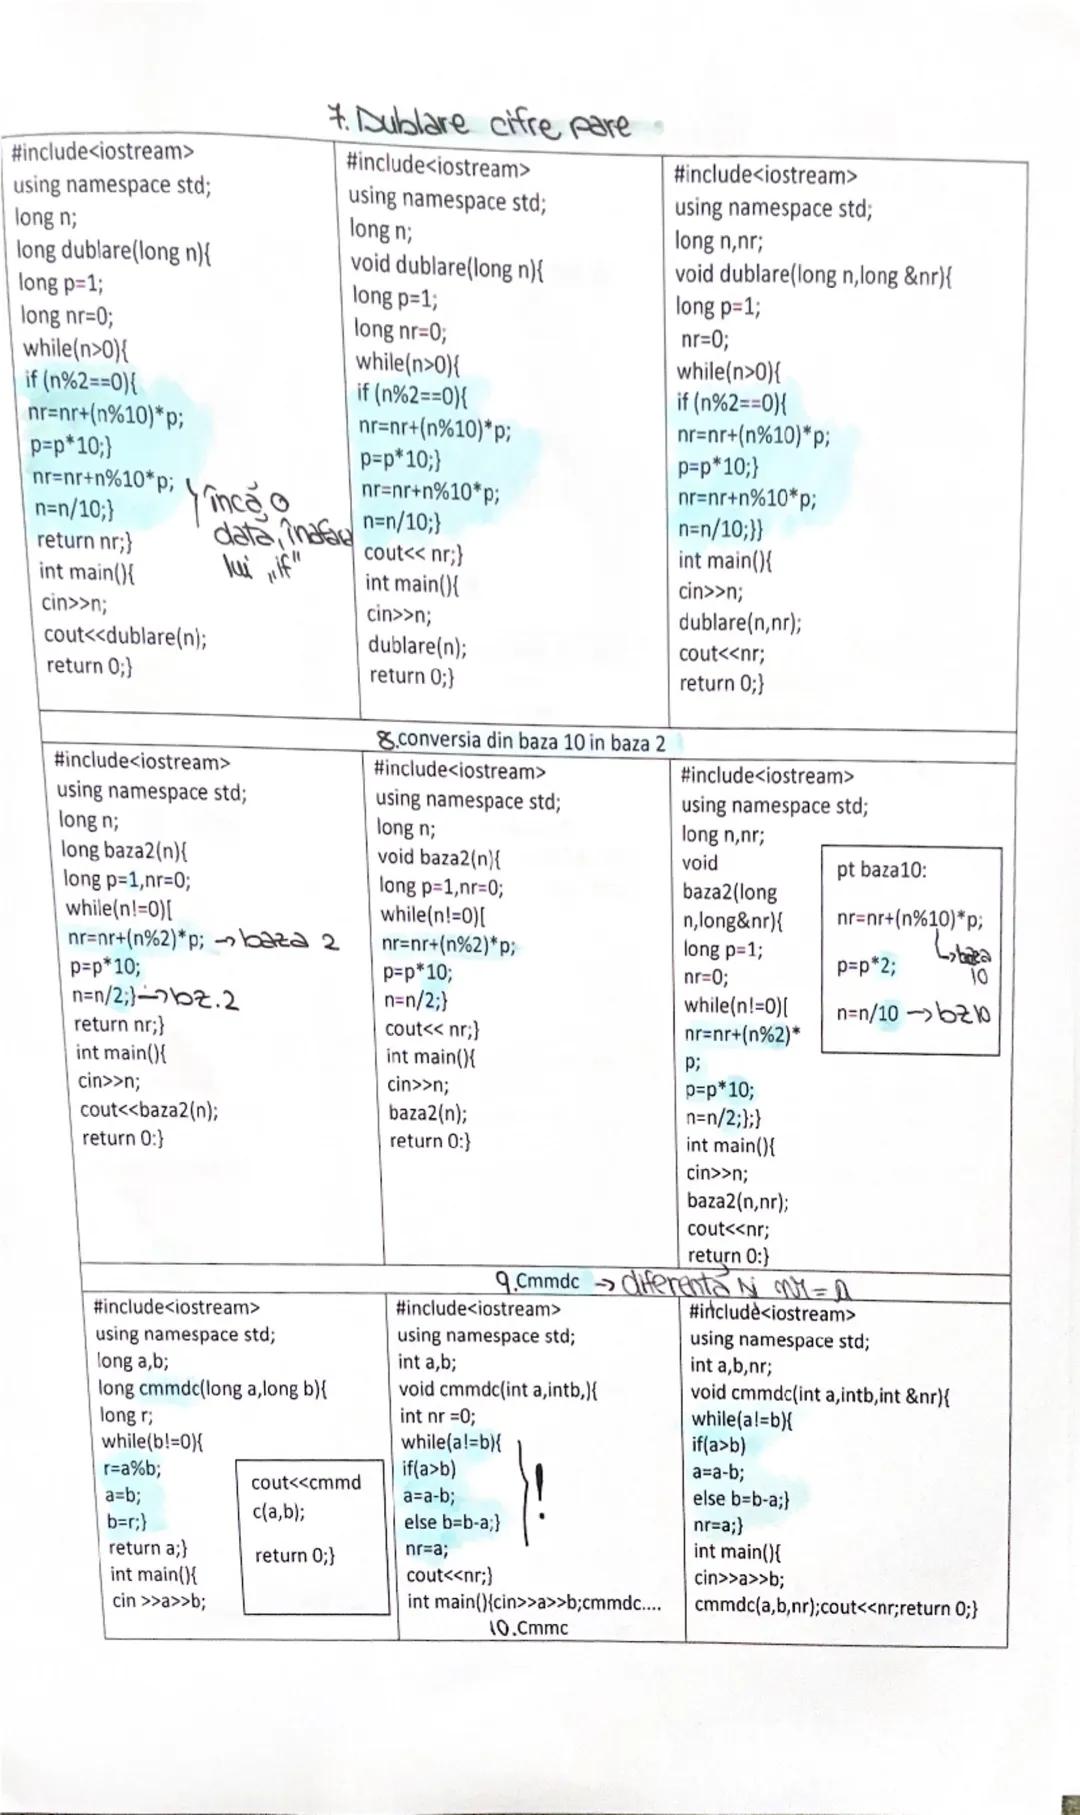 7. Dublare cifre pare
#include<iostream>
using namespace std;
long n;
long dublare(long n){
long p=1;
long nr=0;
while(n>0){
if (n%2==0){
nr=nr+(n%10)*p;
p=p*10;}
nr=nr+n%10*p;
n=n/10;}
return nr;}
int main(){
cin>>n;
cout<<dublare(n);
return 0;}
încă o
dată, înafara
lui „if"
#include<iostream>
using namespace std;
long n;
void dublare(long n){
long p=1;
long nr=0;
while(n>0){
if (n%2==0){
nr=nr+(n%10)*p;
p=p*10;}
nr=nr+n%10*p;
n=n/10;}
cout<< nr;}
int main(){
cin>>n;
dublare(n);
return 0;}
#include<iostream>
using namespace std;
long n,nr;
void dublare(long n,long &nr){
long p=1;
nr=0;
while(n>0){
if (n%2==0){
nr=nr+(n%10)*p;
p=p*10;}
nr=nr+n%10*p;
n=n/10;}}
int main(){
cin>>n;
dublare(n,nr);
cout<<nr;
return 0;}
8.conversia din baza 10 in baza 2
#include<iostream>
using namespace std;
long n;
long baza2(n){
long p=1,nr=0;
while(n!=0)[
nr=nr+(n%2)*p; → baza 2
p=p*10;
n=n/2;} → bz.2
return nr;}
int main(){
cin>>n;
cout<<baza2(n);
return 0:}
#include<iostream>
using namespace std;
long n;
void baza2(n){
long p=1,nr=0;
while(n!=0)[
nr=nr+(n%2)*p;
p=p*10;
n=n/2;}
cout<< nr;}
int main(){
cin>>n;
baza2(n);
return 0:}
#include<iostream>
using namespace std;
long n,nr;
void
baza2(long
n,long&nr){
long p=1;
nr=0;
while(n!=0)[
nr=nr+(n%2)*
p;
p=p*10;
n=n/2;};}
int main(){
cin>>n;
baza2(n,nr);
cout<<nr;
return 0:}
pt baza10:
nr=nr+(n%10)*p;
↳baza
10
p=p*2;
n=n/10 → bz10
9.Cmmdc → diferență și nr=a
#include<iostream>
using namespace std;
long a,b;
long cmmdc(long a,long b){
long r;
while(b!=0){
r=a%b;
a=b;
b=r;}
return a;}
int main(){
cin >>a>>b;
cout<<cmmd
c(a,b);
return 0;}
#include<iostream>
using namespace std;
int a,b;
void cmmdc(int a,intb,){
int nr =0;
while(a!=b){
if(a>b)
a=a-b;
else b=b-a;}
nr=a;
cout<<nr;}
int main(){cin>>a>>b;cmmdc....
!
#include<iostream>
using namespace std;
int a,b,nr;
void cmmdc(int a,intb,int &nr){
while(a!=b){
if(a>b)
a=a-b;
else b=b-a;}
nr=a;}
int main(){
cin>>a>>b;
cmmdc(a,b,nr);cout<<nr;return 0;}
10.Cmmc